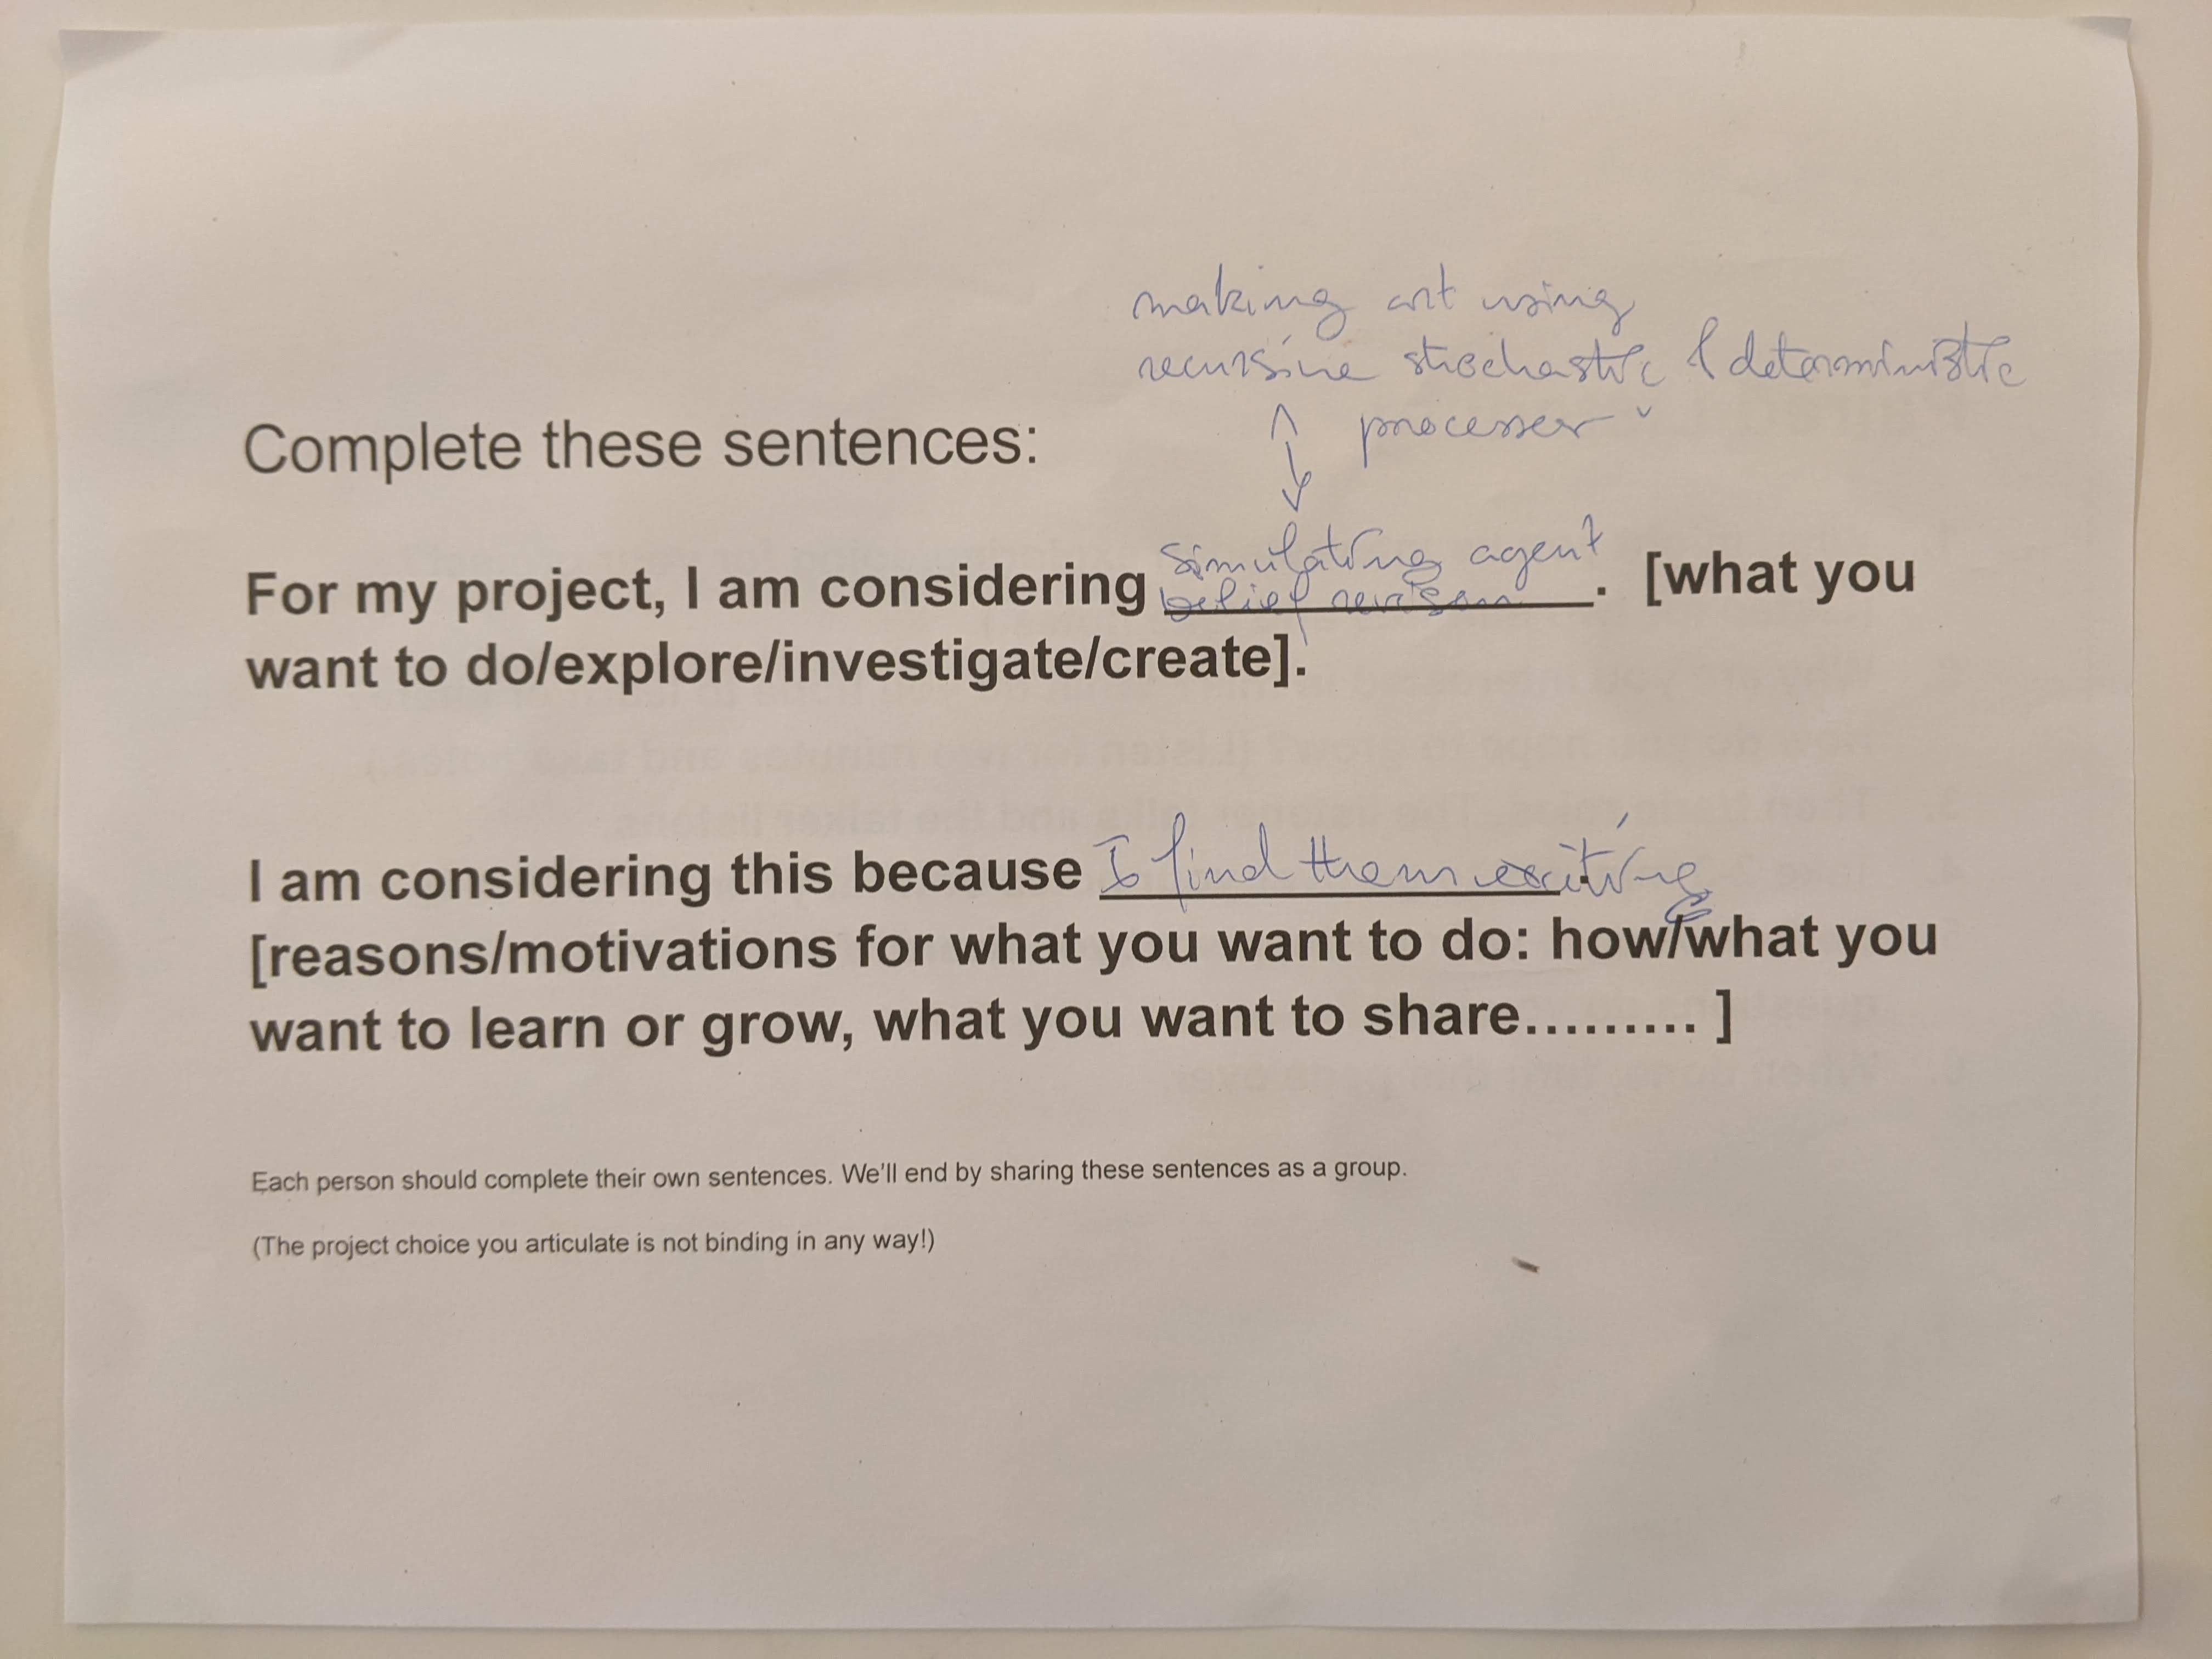 making art using
recursive stochastic & deterministic
processes
Complete these sentences:
simulating agent
For my project, I am considering belief revision. [what you
want to do/explore/investigate/create].
I am considering this because I find them exciting.
[reasons/motivations for what you want to do: how/what you
want to learn or grow, what you want to share......... ]
Each person should complete their own sentences. We'll end by sharing these sentences as a group.
(The project choice you articulate is not binding in any way!)